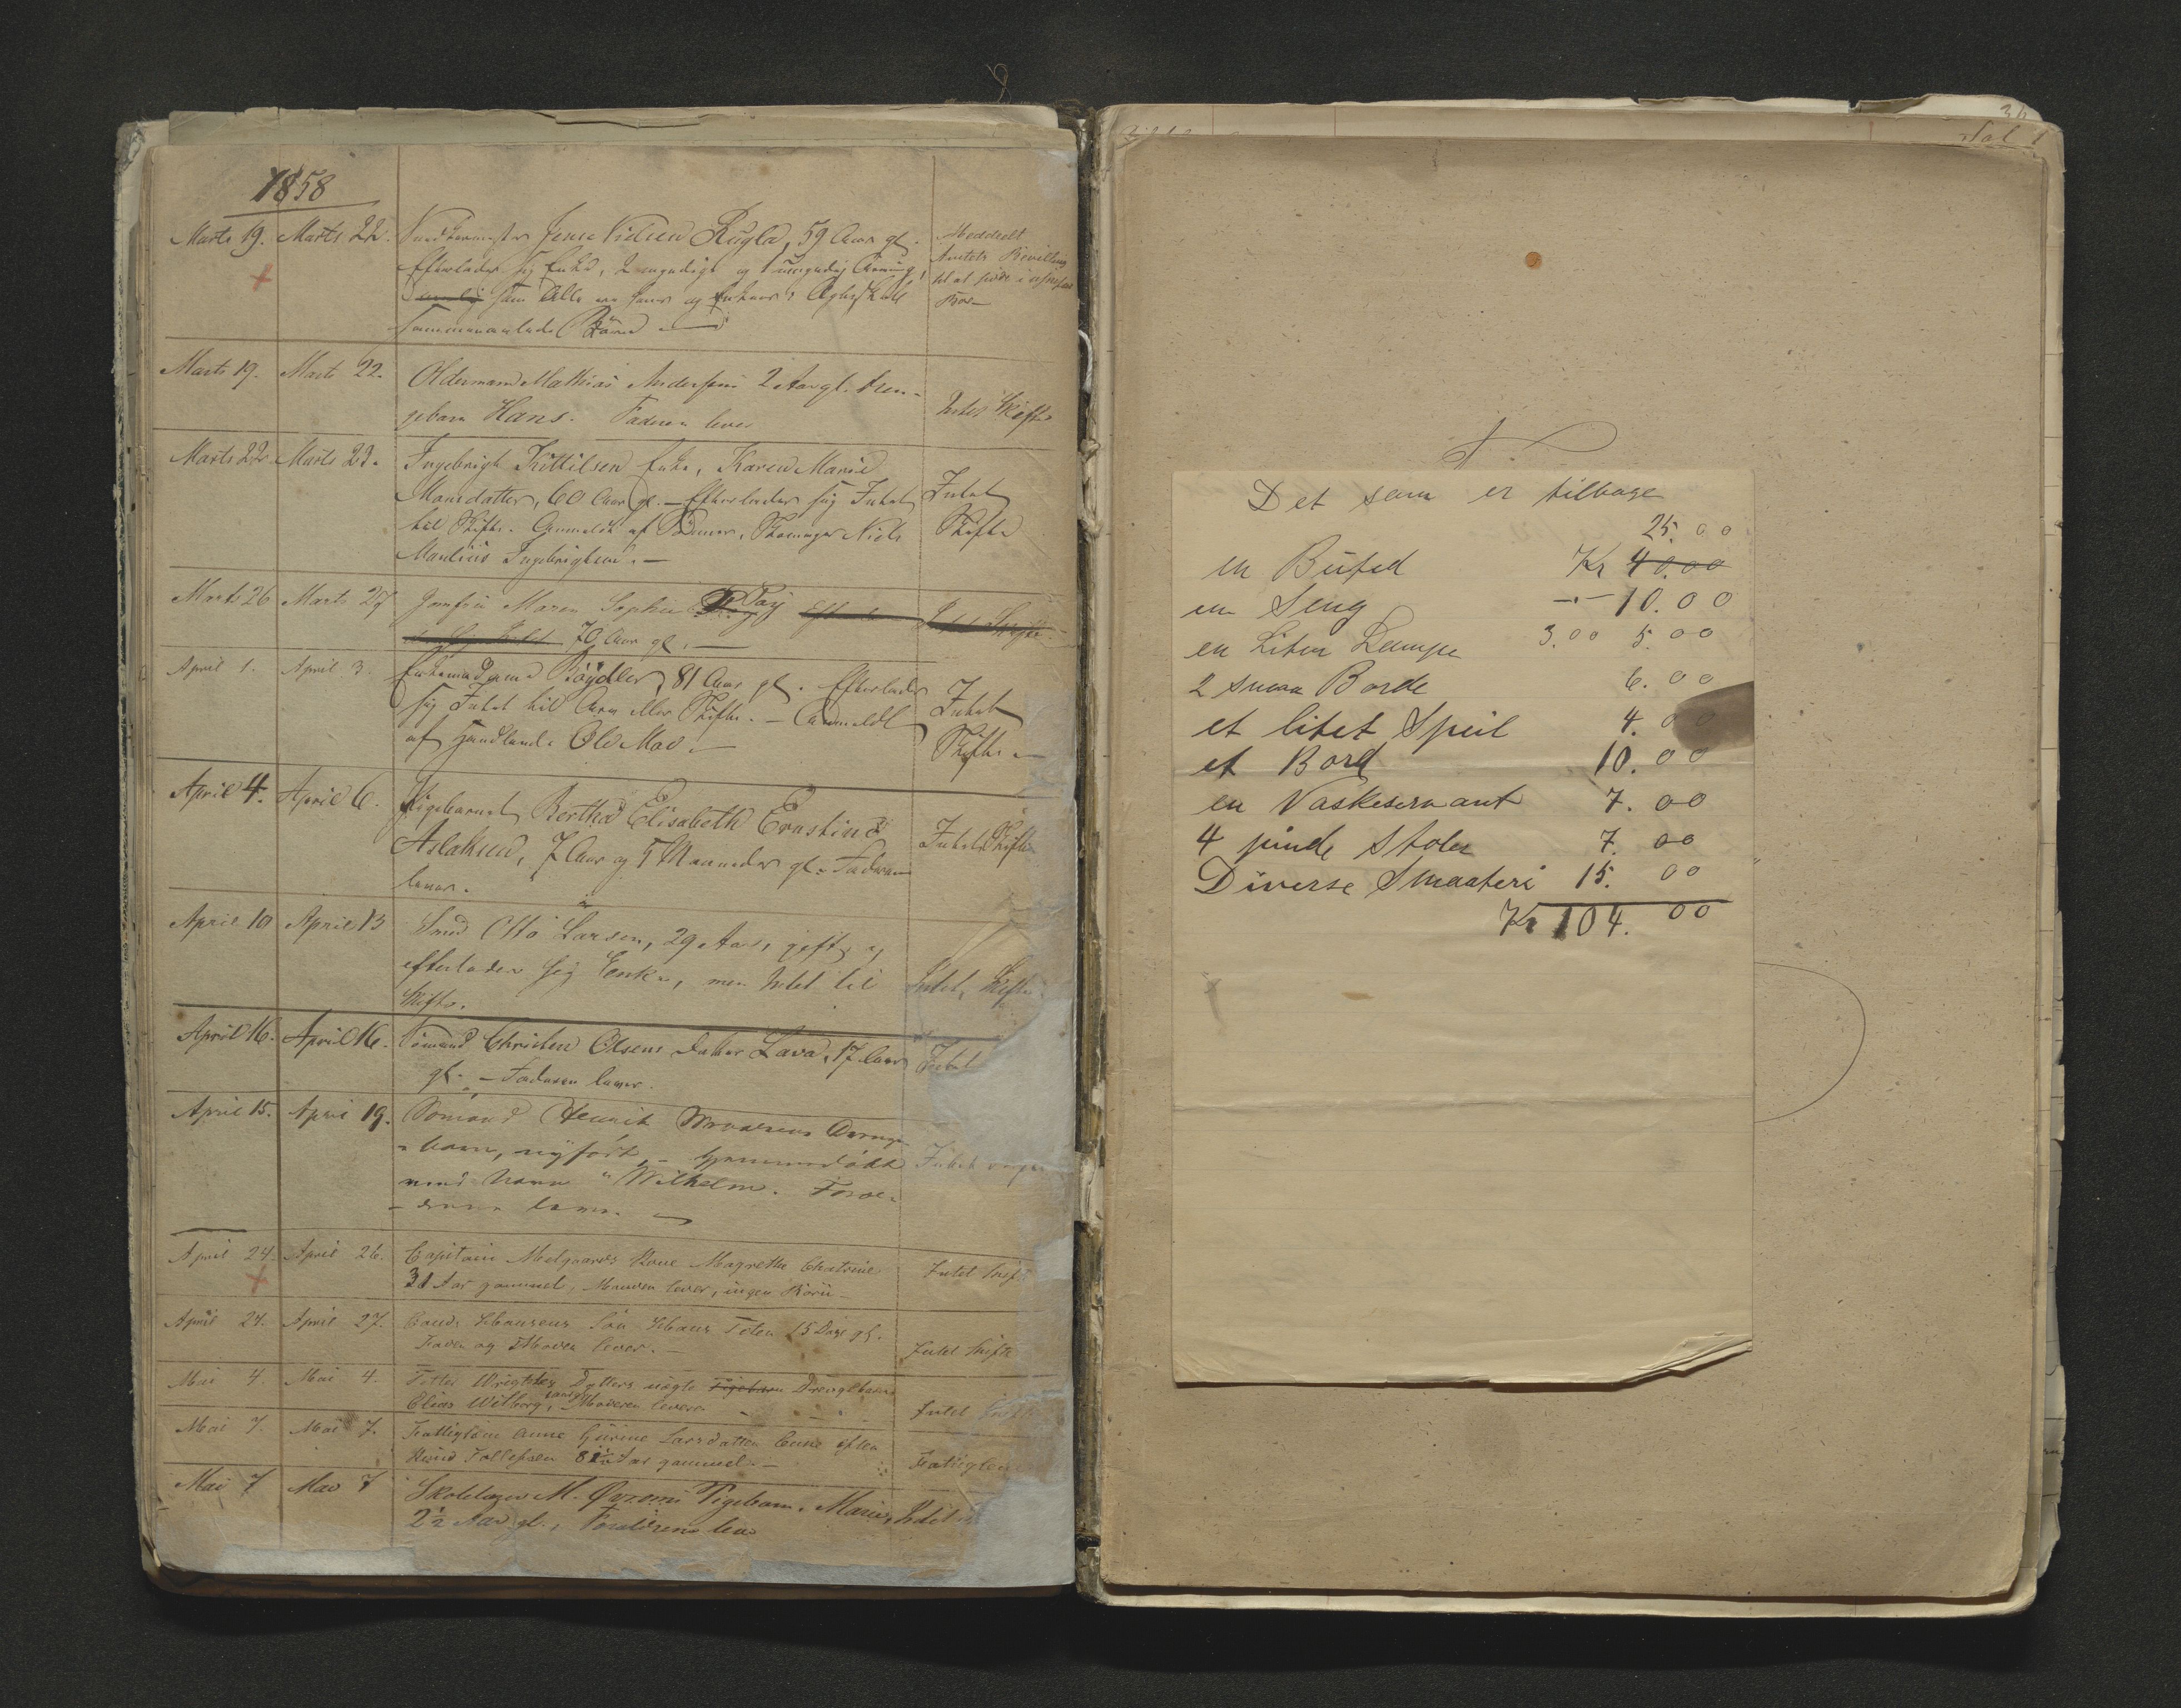 1858
Marts 19. Marts 22. Jens Nielsen Rugla, 59 Aar gl.
Efterlader sig Enke, 2 myndige og 1 umyndig Arving,
som Alle ere hans og Enkens i Ægteskab
sammenavlede Börn
Meddeelt
Amtets Bevilling
til at sidde i uskiftet
Boe
Marts 19. Marts 22. Oldermand Mathias Andersens 2 Aar gl. Dren-
gebarn Hans. Faderen lever
Intet Skifte
Marts 22 Marts 23. Ingebrigt Kittilsen Enke, Karen Marie
Monsdatter, 60 Aar gl. – Efterlader sig Intet
til Skifte. Anmeldt af Sönnen, Skomager Niels
Mauticus Ingebrigtsen. –
Intet
Skifte
Marts 26 Marts 27 Jomfru Maren Sophie Pay
70 Aar gl. –
Intet Skifte
April 1. April 3. Enkemadame Böydler, 81 Aar gl. Efterlader
sig Intet til Arv eller Skifte. – Anmeldt
af Handlende Ole Moe –
Intet
Skifte –
April 4. April 6. Pigebarnet Bertha Elisabeth Ernstine
Aslaksen, 7 Aar og 5 Maaneder gl. Faderen
lever.
Intet Skifte
April 10 April 13 Smed Otto Larsen, 29 Aar, gift,
efterlader sig Enke, men Intet til
Skifte.
Intet Skifte
April 16. April 16. Sömand Christen Olsens Datter Lava, 17 Aar
gl. – Faderen lever.
Intet
April 15. April 19. Sömand Henrik Drenge-
barn, nyfödt, – hjemmedöbt
med Navn "Wilhelm. Foræl-
drene lever
Intet
April 24. April 26. Capitain Melgaards Kone Magrethe Chatrine
31 Aar gammel, Manden lever, ingen Börn –
Intet Skif
April 24. April 27. Cand. Schousens Sön Schous Feten 15 Dage gl.
Fader og Moder lever. –
Intet Skifte
Mai 4. Mai 4. Datters uægte Pigebarn Drengebarn
Elias Wilberg, Moderen lever
Intet Skifte
Mai 7. Mai 7. Fattiglem Anne Gurine Larsdatter Enke efter
Tollefsen 81 Aar gammel. –
Fattiglem
Mai 7 Mai 7 Skolelærer M. Pigebarn. Marie,
2½ Aar gl., Forældrene lever
Intet
Det som er tilbage
25.00
en Büfed Kr 40.00
en Seng –"– 10.00
en Liten Lampe 3.00 5.00
2 smaa Borde 6.00
et litet Speil 4.00
et Bord 10.00
en Vaskeservant 7.00
4 pinde Stoler 7.00
Diverse Smaateri 15.00
Kr 104.00